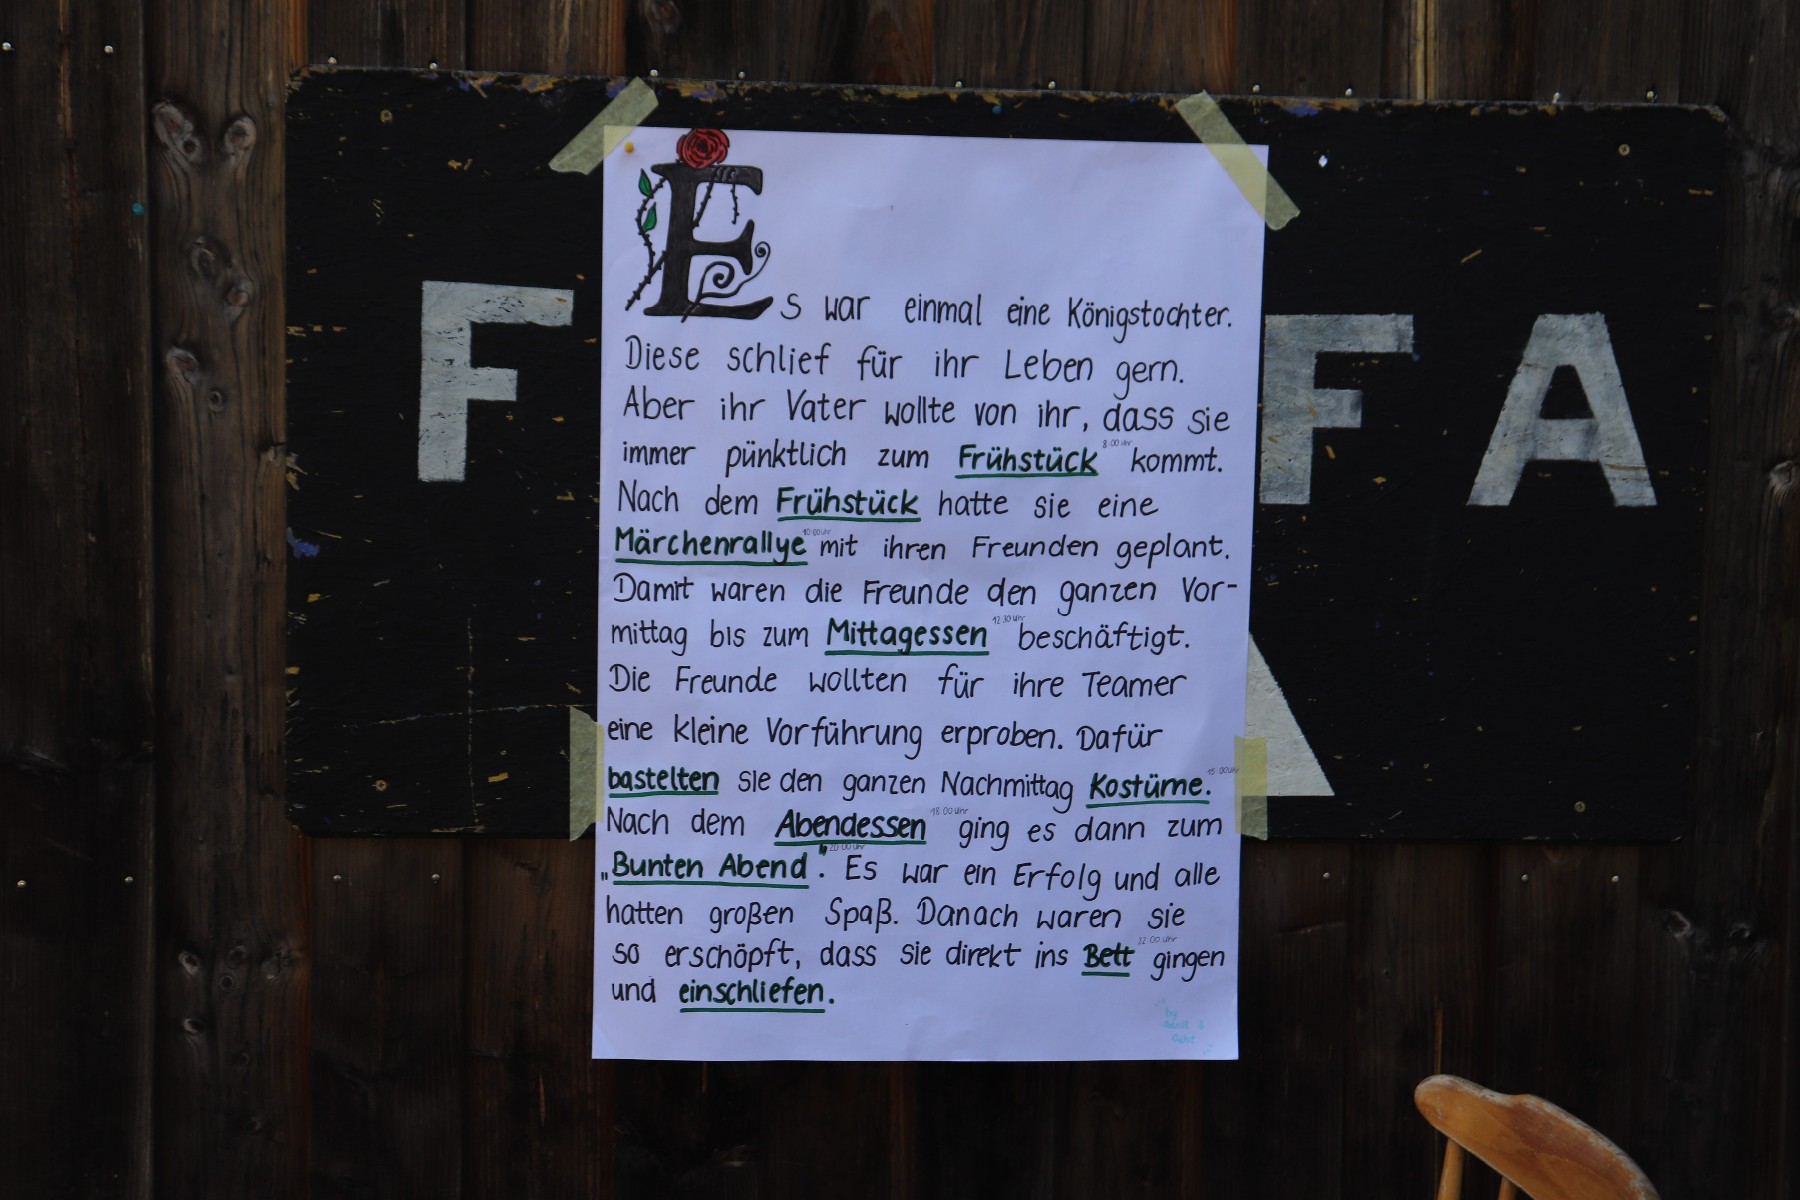 F FA
Es war einmal eine Königstochter.
Diese schlief für ihr Leben gern.
Aber ihr Vater wollte von ihr, dass sie
immer pünktlich zum Frühstück 8:00 Uhr kommt.
Nach dem Frühstück hatte sie eine
Märchenrallye 10:00 Uhr mit ihren Freunden geplant.
Damit waren die Freunde den ganzen Vor-
mittag bis zum Mittagessen 12:30 Uhr beschäftigt.
Die Freunde wollten für ihre Teamer
eine kleine Vorführung erproben. Dafür
bastelten sie den ganzen Nachmittag Kostüme. 15:00 Uhr
Nach dem Abendessen 18:00 Uhr ging es dann zum
„Bunten Abend". 20:00 Uhr Es war ein Erfolg und alle
hatten großen Spaß. Danach waren sie
so erschöpft, dass sie direkt ins Bett 22:00 Uhr gingen
und einschliefen.
by